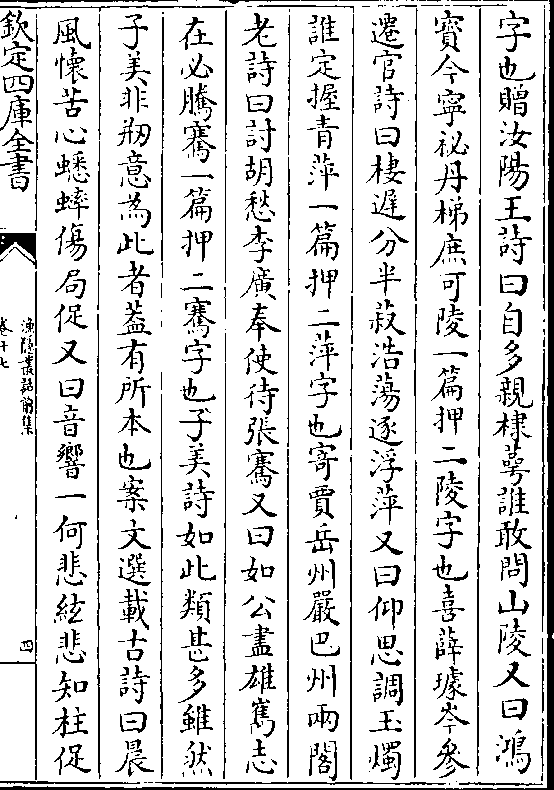 字也贈汝陽王詩曰自多親棣萼誰敢問山陵又曰鴻
寳今寧祕丹梯庶可陵一篇押二陵字也喜薛璩岑參
遷官詩曰棲遲分半菽浩蕩逐浮萍又曰仰思調玉燭
誰定握青萍一篇押二萍字也寄賈岳州嚴巴州兩閣
老詩曰討胡愁李廣奉使待張騫又曰如公盡雄雋志
在必騰騫一篇押二騫字也子美詩如此類甚多雖然
子美非剏意為此者葢有所本也案文選載古詩曰晨
風懷苦心蟋蟀傷局促又曰音響一何悲絃悲知柱促
欽定四庫全書
漁隠叢話前集
卷十七
四